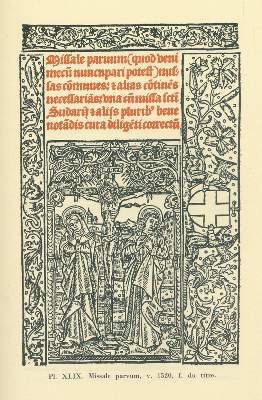 Missale paruum (quod veni
mecū nuncupari potest) mis-
sas cōmunes: & alias cōtinēs
necessarias: vna cū missa sctī
Sudarij & alijs plurib⁹ bene
notādis cura diligēti correctū
Pl. XLIX. Missale parvum, v. 1520, f. du titre.